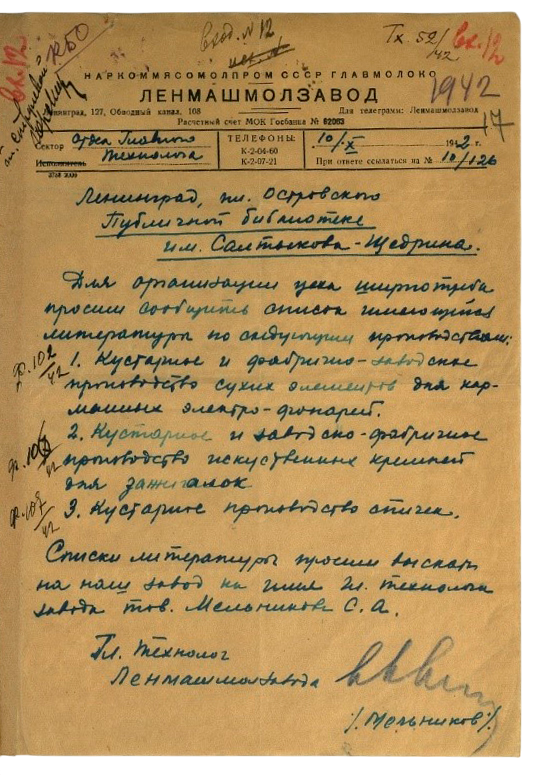 Вход. № 12
Тх. 52/42
Вх. 12
Вх. 12
НАРКОММЯСОМОЛПРОМ СССР ГЛАВМОЛОКО
1942
ЛЕНМАШМОЛЗАВОД
17
Ленинград, 127, Обводный канал. 108
Для телеграмм: Ленмашмолзавод
Расчетный счет МОК Госбанка № 82063
Сектор Отдел Главного
Исполнитель Технолога
ТЕЛЕФОНЫ:
К-2-04-60
К-2-07-21
10/X 1942 г.
При ответе ссылаться на № 10/126
Ленинград, пл. Островского
Публичной библиотеке
им. Салтыкова-Щедрина.
Для организации цеха ширпотреба
просим сообщить список имеющейся
литературы по следующим производствам:
ф. 102/42
1. Кустарное и фабрично-заводское
производство сухих элементов для кар-
манных электро-фонарей.
2. Кустарное и заводско-фабричное
производство искуственных кремней
для зажигалок
ф. 107/42
3. Кустарное производство спичек.
Списки литературы просим выслать
на наш завод на имя Гл. технолога
завода тов. Мельникова С. А.
Гл. Технолог
Ленмашмолзавода
/Мельников/.